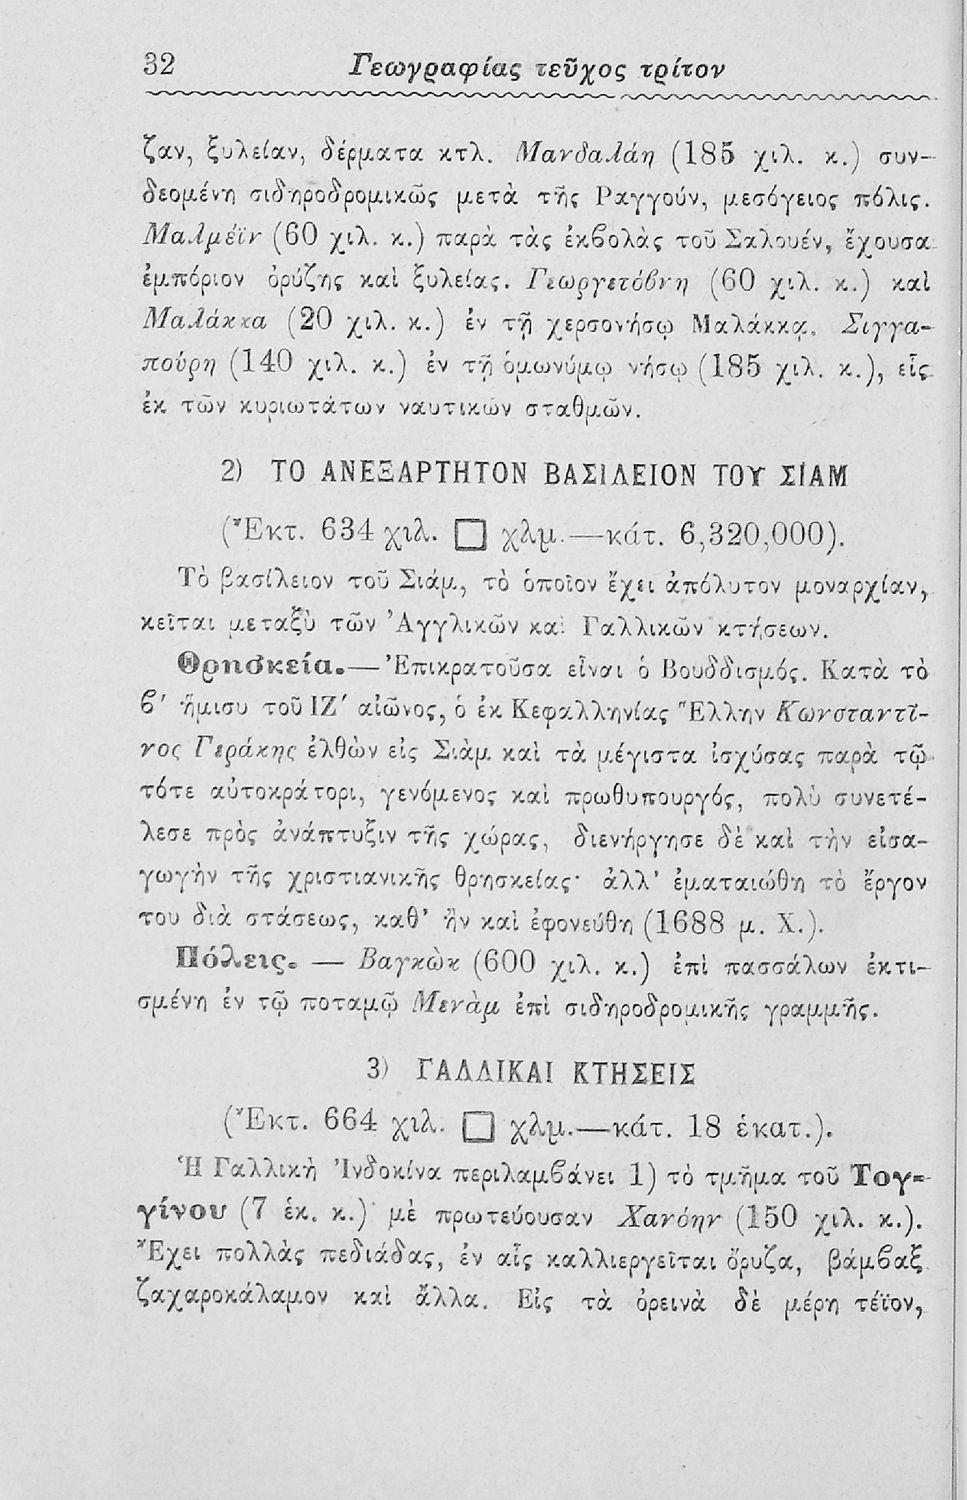 32 Γεωγραφίας τεῦχος τρίτον
ζαν, ξυλείαν, δέρματα κτλ. Μανδαλάη (185 χιλ. κ.) συν-
δεομένη σιδηροδρομικῶς μετὰ τῆς Ραγγούν, μεσόγειος πόλις.
Μαλμέϊν (60 χιλ. κ.) παρὰ τὰς ἐκβολὰς τοῦ Σαλουέν, ἔχουσα
ἐμπόριον ὀρύζης καὶ ξυλείας. Γεωργετόβνη (60 χιλ. κ.) καὶ
Μαλάκκα (20 χιλ. κ.) ἐν τῇ χερσονήσῳ Μαλάκκᾳ. Σιγγα-
πούρη (140 χιλ. κ.) ἐν τῇ ὁμωνύμῳ νήσῳ (185 χιλ. κ.), εἷς
ἐκ τῶν κυριωτάτων ναυτικῶν σταθμῶν.
2) ΤΟ ΑΝΕΞΑΡΤΗΤΟΝ ΒΑΣΙΛΕΙΟΝ ΤΟΥ ΣΙΑΜ
(Ἔκτ. 634 χιλ. □ χλμ.—κάτ. 6,320,000).
Τὸ βασίλειον τοῦ Σιάμ, τὸ ὁποῖον ἔχει ἀπόλυτον μοναρχίαν,
κεῖται μεταξὺ τῶν Ἀγγλικῶν καὶ Γαλλικῶν κτήσεων.
Θρησκεία.—Ἐπικρατοῦσα εἶναι ὁ Βουδδισμός. Κατὰ τὸ
β′ ἥμισυ τοῦ ΙΖ′ αἰῶνος, ὁ ἐκ Κεφαλληνίας Ἕλλην Κωνσταντῖ-
νος Γεράκης ἐλθὼν εἰς Σιὰμ καὶ τὰ μέγιστα ἰσχύσας παρὰ τῷ
τότε αὐτοκράτορι, γενόμενος καὶ πρωθυπουργός, πολὺ συνετέ-
λεσε πρὸς ἀνάπτυξιν τῆς χώρας, διενήργησε δὲ καὶ τὴν εἰσα-
γωγὴν τῆς χριστιανικῆς θρησκείας· ἀλλ' ἐματαιώθη τὸ ἔργον
του διὰ στάσεως, καθ' ἣν καὶ ἐφονεύθη (1688 μ. Χ.).
Πόλεις. — Βαγκὼκ (600 χιλ. κ.) ἐπὶ πασσάλων ἐκτι-
σμένη ἐν τῷ ποταμῷ Μενὰμ ἐπὶ σιδηροδρομικῆς γραμμῆς.
3) ΓΑΛΛΙΚΑΙ ΚΤΗΣΕΙΣ
(Ἔκτ. 664 χιλ. □ χλμ.—κάτ. 18 ἑκατ.).
Ἡ Γαλλικὴ Ἰνδοκίνα περιλαμβάνει 1) τὸ τμῆμα τοῦ Τογ-
γίνου (7 ἑκ. κ.) μὲ πρωτεύουσαν Χανόην (150 χιλ. κ.).
Ἔχει πολλὰς πεδιάδας, ἐν αἷς καλλιεργεῖται ὄρυζα, βάμβαξ
ζαχαροκάλαμον καὶ ἄλλα. Εἰς τὰ ὀρεινὰ δὲ μέρη τέϊον,